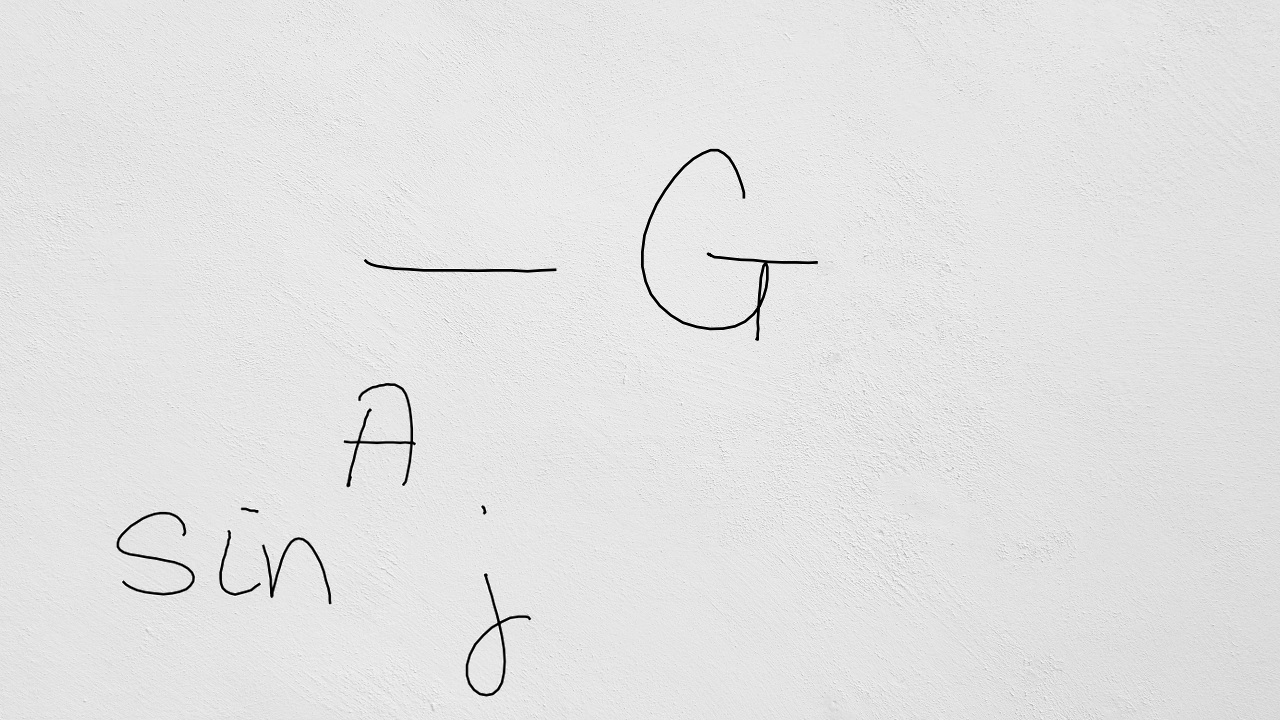 — G
A
sin j